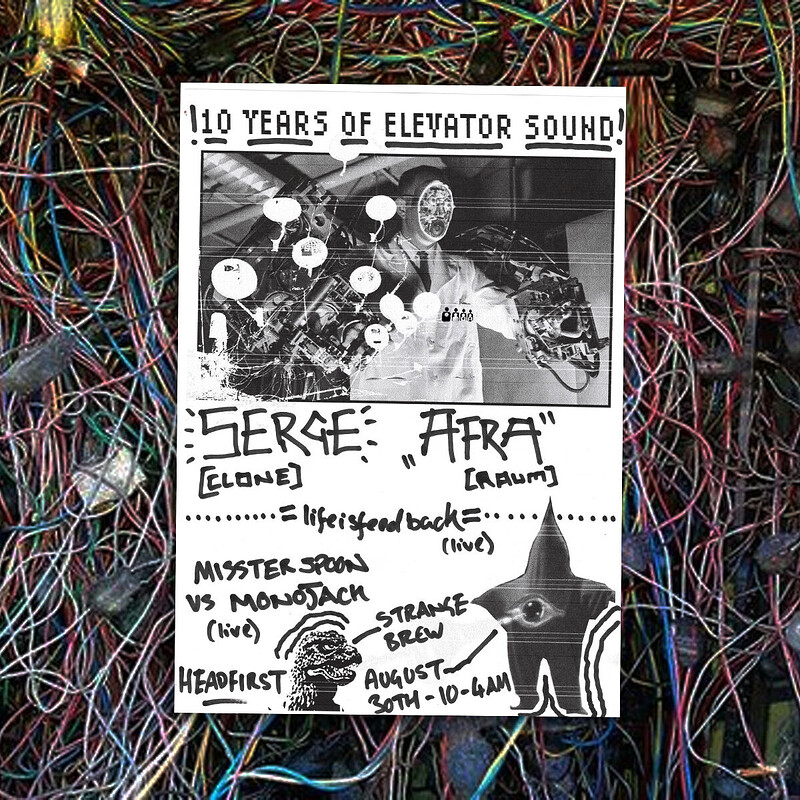 !10 YEARS OF ELEVATOR SOUND!
SERGE „AFRA"
[CLONE] [RAUM]
·········=lifeisfeedback=·········
(live)
MISSTER SPOON
VS MONOJACK
(live)
STRANGE
BREW
HEADFIRST
AUGUST
30TH-10-4AM